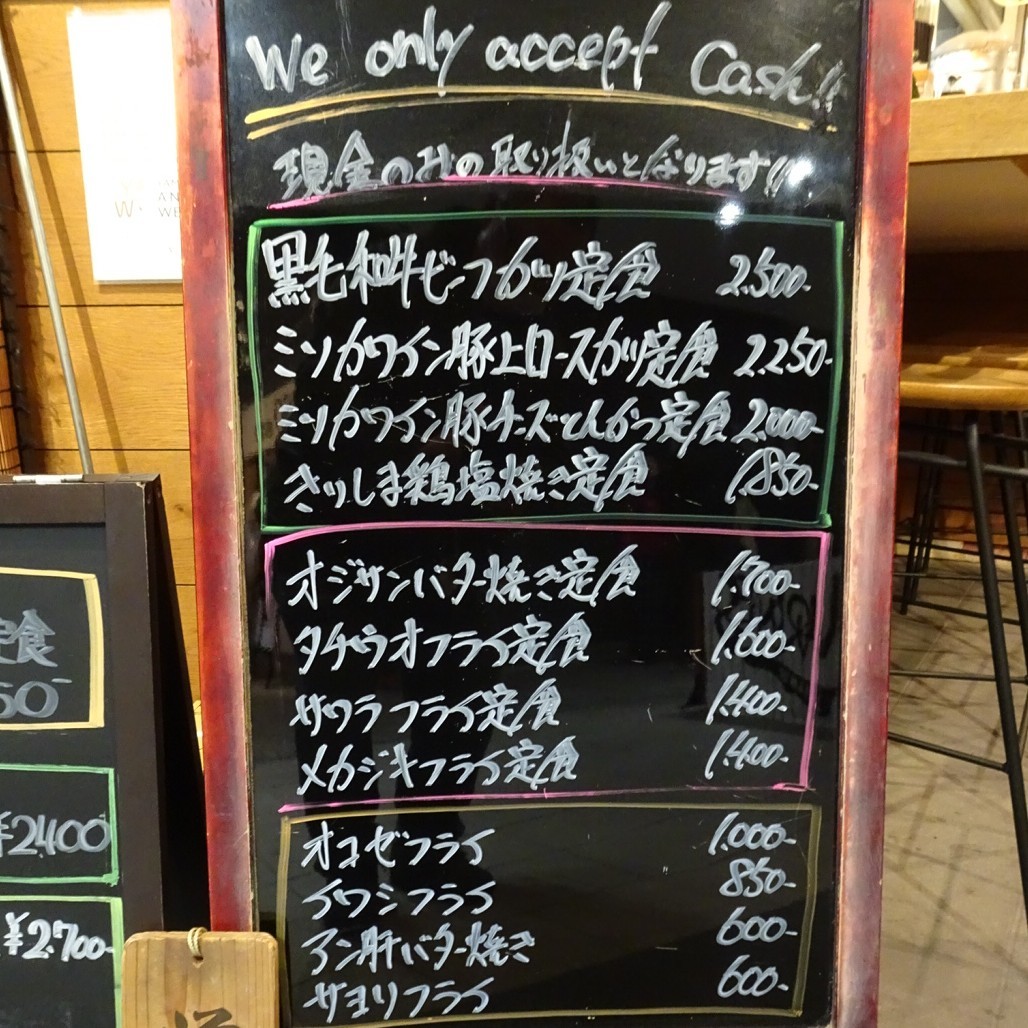 We only accept Cash!!
現金のみの取り扱いとなります!!
黒毛和牛ビーフカツ定食 2.500-
ミツカワイン豚上ロースカツ定食 2.250-
ミツカワイン豚チーズとんかつ定食 2.000-
さつしま鶏塩焼き定食 1.850-
オジサンバター焼き定食 1.700-
タチウオフライ定食 1.600-
サワラフライ定食 1.400-
メカジキフライ定食 1.400-
オコゼフライ 1.000-
イワシフライ 850-
アン肝バター焼き 600-
サヨリフライ 600-
定食
50-
¥2400
¥2.700-